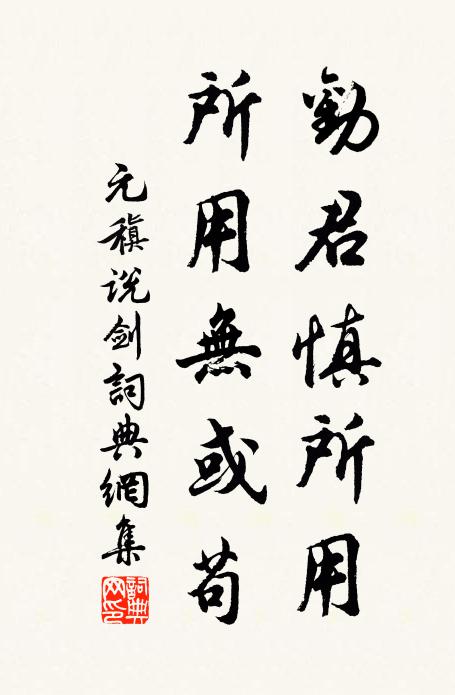 勸君慎所用
所用無或苟
元稹说剑詞典網集
詞典网印